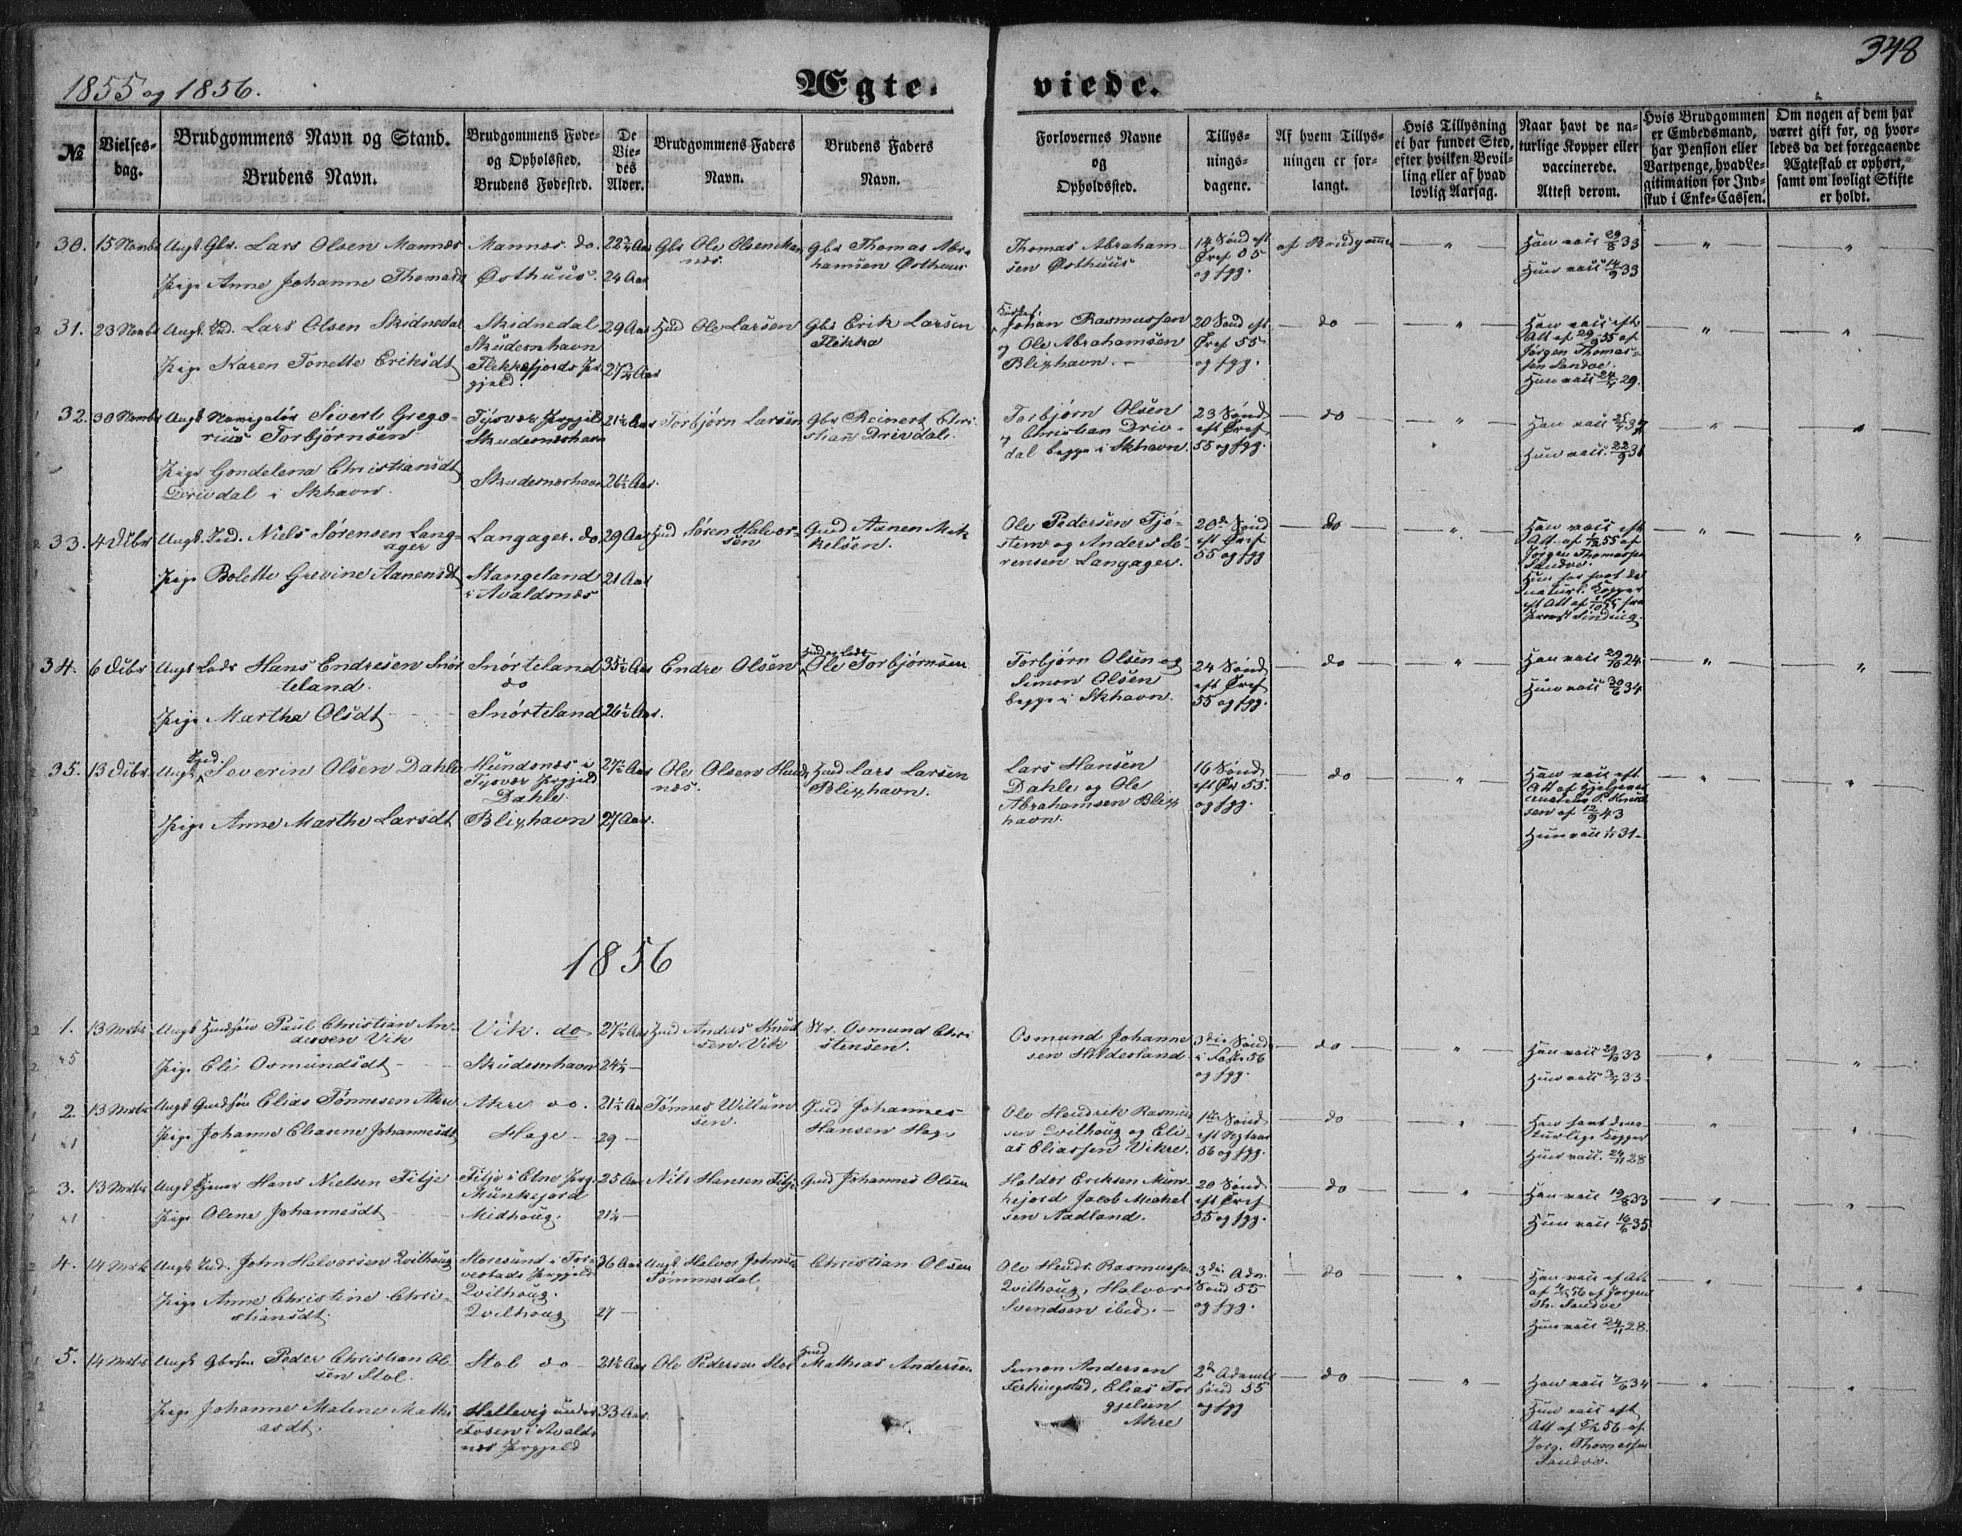 348
1855 og 1856.
Ægte- viede.
№
Vielses-
dag.
Brudgommens Navn og Stand.
Brudens Navn.
Brudgommens Føde-
og Opholdssted.
Brudens Fødested.
De
Vie-
des
Alder.
Brudgommens Faders
Navn.
Brudens Faders
Navn.
Forlovernes Navne
og
Opholdssted.
Tillys-
nings-
dagene.
Af hvem Tillys-
ningen er for-
langt.
Hvis Tillysning
ei har fundet Sted,
efter hvilken Bevil-
ling eller af hvad
lovlig Aarsag.
Naar havt de na-
turlige Kopper eller
vaccinerede.
Attest derom.
Hvis Brudgommen
er Embedsmand,
har Pension eller
Vartpenge, hvad Le-
gitimation for Ind-
skud i Enke-Cassen.
Om nogen af dem har
været gift for, og hvor-
ledes da det foregaaende
Ægteskab er ophørt,
samt om lovligt Skifte
er holdt.
30. 15 Novbr Ungk Gbr. Lars Olsen Mannes
Pige Anne Johanne Thomasdt
Mannes. do.
Østhuus.
22½ Aar
24 Aar
Gbr Ole Olsen Man
nes.
Gbr Thomas Abra
hamsen Østhuus
Thomas Abraham-
sen Østhuus
14 Sönd eft
Tref 55
og fgg.
af Brudgommen
"
Han vacc 29/8 33
Hun vacc 14/9 33
"
"
31. 23 Novbr Ungk Ind. Lars Olsen Skidnedal
Pige Karen Tonette Eriksdt
Skidnedal
Skudesnhavn
Flekkefjords Pr
gjeld.
29 Aar
27¼ Aar
Hmd Ole Larsen
Gbr Erik Larsen
Flikka
Johan Rasmussen
og Ole Abrahamsen
Blixhavn. -
20 Sönd eft
Tref 55
og fgg.
do
"
Han vacc eft
Att af 29/9 55 af
Jörgen Thomas-
sen Sandve.
Hun vacc 24/ 29.
"
"
32. 30 Novbr Ungk Navigatör Sivert Grego-
rius Torbjörnsen
Pige Gondelena Christiansdt
Drivdal i Skhavn.
Tysvær Prgjeld
Skudesneshavn
Skudesneshavn
21½ Aar
26½ Aar
Torbjörn Larsen
Gbr Reinert Chri
stian Drivdal.
Torbjörn Olsen
og Christian Driv-
dal begge i Skhavn.
23 Sönd
eft Tref
55 og fgg.
do
"
Han vacc 25/ 34
Hun vacc. 22/9 31
"
"
33. 4 Dcbr Ungk. Ind. Niels Sörensen Lang-
ager
Pige Bolette Grevine Aanensdt
Langager. do.
Stangeland
i Avaldsnæs
29 Aar
21 Aar
Hmd Sören Halvor-
sen
Gmd Aanen Mik
kelsen.
Ole Pedersen Tjö-
stem og Anders Sö-
rensen Langager.
20de Sönd
eft Tref
55 og fgg
do
"
Han vacc eft
Att. af 1/12 55 af
Jörgen Thomassen
Sandve.
Hun har havt de
naturl. Kopper
eft Att af 15/10 55 fra
Provst Sinding.
"
"
34. 6 Dcbr Ungk Lods Hans Endresen Snör
teland.
Pige Martha Olsdt
Snörteland
do
Snörteland
35½ Aar
26½ Aar.
Endre Olsen
Ole Torbjörnsen
Torbjörn Olsen og
Simon Olsen
begge i Skhavn.
24 Sönd
eft Tref
55 og fgg.
do
"
Han vacc 29/10 24
Hun vacc 30/6 34
"
"
35. 13 Dcbr Ungk Ind. Severin Olsen Dahle
Pige Anne Marthe Larsdt
Hundsnæs i
Tysvær Prgjeld
Dahle.
Blixhavn
27½ Aar
27 Aar.
Ole Olsen Hunds
næs.
Hmd Lars Larsen
Blixhavn.
Lars Hansen
Dahle og Ole
Abrahamsen Blix
havn.
16 Sönd
eft Tr 55.
og fgg.
do
"
Han vacc eft.
Att af Hjelpevac
cinatör P. Knud
sen af 12/9 43
Hun vacc 1/11 31.
"
"
1856
1. 13 Marts Ungk Hmdsön Paul Christian An-
dersen Vik
Pige Eli Osmundsdt
Vik. do
Skudesnhavn
27½ Aar
24½ -
Hmd Anders Knud
sen Vik
Str. Osmund Chri
stensen.
Osmund Johanne
sen Hildesland
3die Sönd
i Faste 56
og fgg.
do
"
Han vacc 29/10 33
Hun vacc 3/7 33.
"
"
2. 13 Marts Ungk Gmdsön Elias Tönnesen Akre
Pige Johanne Elianne Johannesdt
Akre do.
Hage -
21½ Aar
29 -
Tönnes Willum
sen.
Gmd Johannes
Hansen Hage
Ole Hendrik Rasmus
sen Qvilhoug og Eli-
as Eliassen Vikre.
1ste Sönd
eft Nytaar
56 og fgg.
do
"
Han havt de na-
turlige Kopper
Hun vacc. 24/11 28
"
"
3. 13 Marts Ungk Tjener Hans Nielsen Filje
Pige Olene Johannesdt
Filje i Etne Prg.
Munkejord
Midhoug.
25 Aar
21½ -
Nils Hansen Filje
Gmd Johannes Olsen
Haldor Eriksen Mun
kejord Jacob Mickel
sen Aadland.
20 Sönd
eft Tref
55 og fgg.
do
"
Han vacc 19/8 33
Hun vacc 16/6 35.
"
"
4. 14 Marts Ungk Ind. John Halvorsen Qvilhoug
Pige Anne Christine Chri-
stiansdt.
Storesund i Tor-
vestads Prgjeld
Qvilhoug.
Qvilhoug
36 Aar
27 -
Ungk Halvor Johnsen
Tömmerdal
Christian Olsen
Ole Hendr. Rasmussen
Qvilhoug, Halvor
Svendsen ibid. -
3die Adv.
Sönd 55
og fgg.
do
"
Han vacc af Att
af /2 56 af Jörgen
Th. Sandve
Hun vacc 24/11 28.
"
"
5. 14 Marts Ungk Gbrsön Peder Christian Ol-
sen Stol.
Pige Johanne Malene Mathi
asdt.
Stol do
Hellevig under
Fosen i Avalds
næs Prgjeld
21½ Aar
33 Aar.
Ole Pedersen Stol
Hmd
Mathias Andersen
Simon Andersen
Ferkingstad, Elias Tor
gjelsen
Akre
2d Advents
Sönd 55
og fgg
do
"
Han vacc 4/6 34
Hun vacc eft
Att af 5/2 56 af
Jörg. Thomassen
Sandve.
"
"